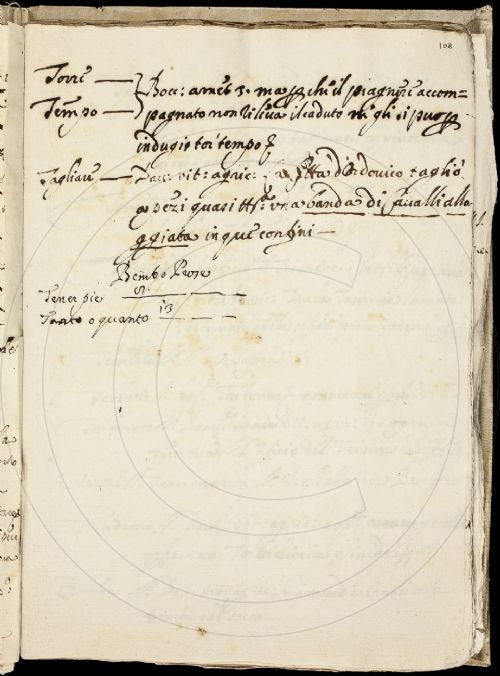 108
Torre — } Bocc: amet 3. ma p che il piagnere accom=
Tempo — } pagnato non lieva il caduto ne gli si puo p
indugio tor tempo
Tagliare — Tac: vit: agric: d'Ordovico tagliò
a pezi quasi tt.a una banda di cavalli allo
ggiata in que confini —
Bembo Prose
Tener pie 51. — — —
Tanto o quanto 13 — — —